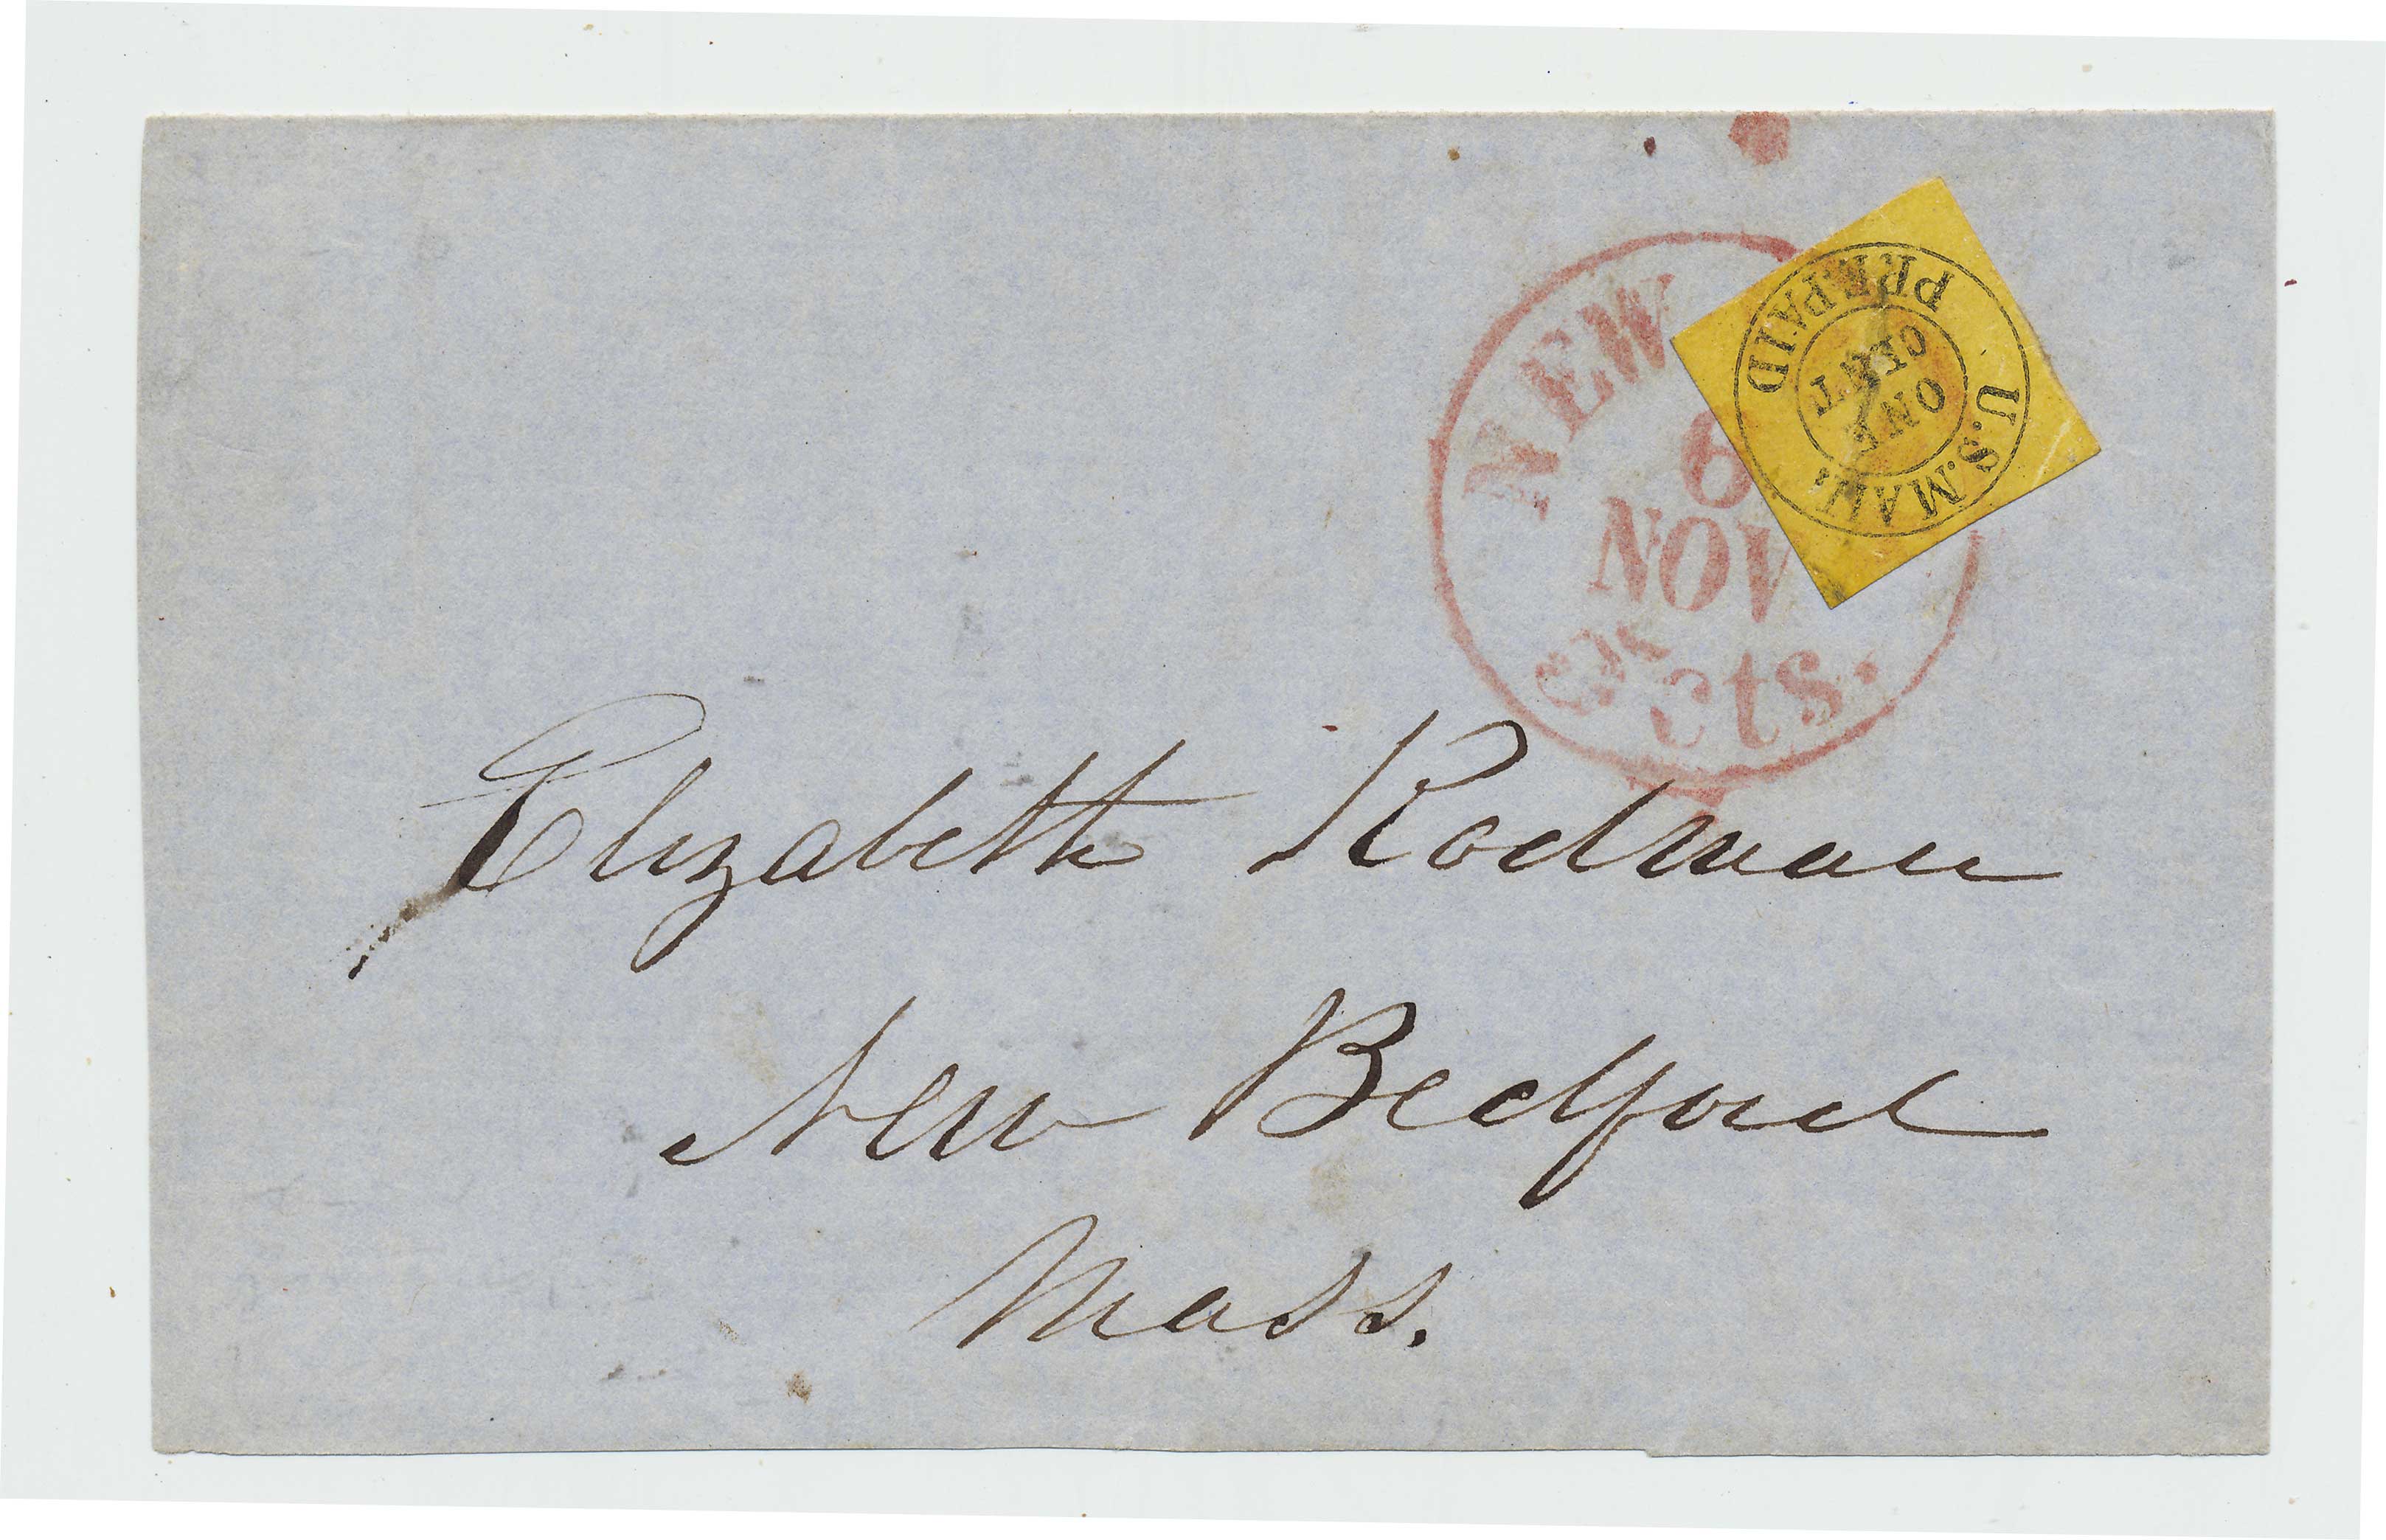 NEW
6
NOV
cts.
U.S.MAIL.
PREPAID
ONE
CENT.
Elizabeth Rodman
New Bedford
Mass.